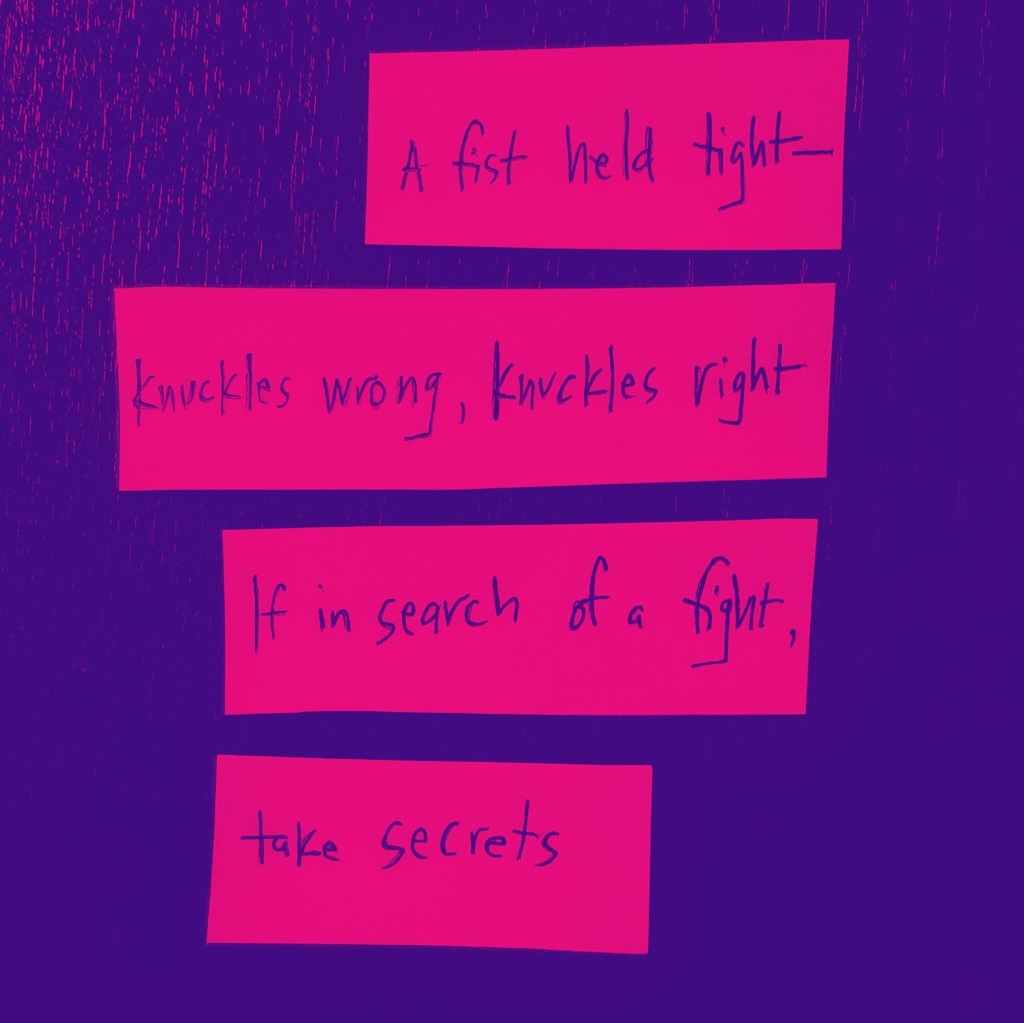 A fist held tight—
knuckles wrong, knuckles right
If in search of a fight,
take secrets